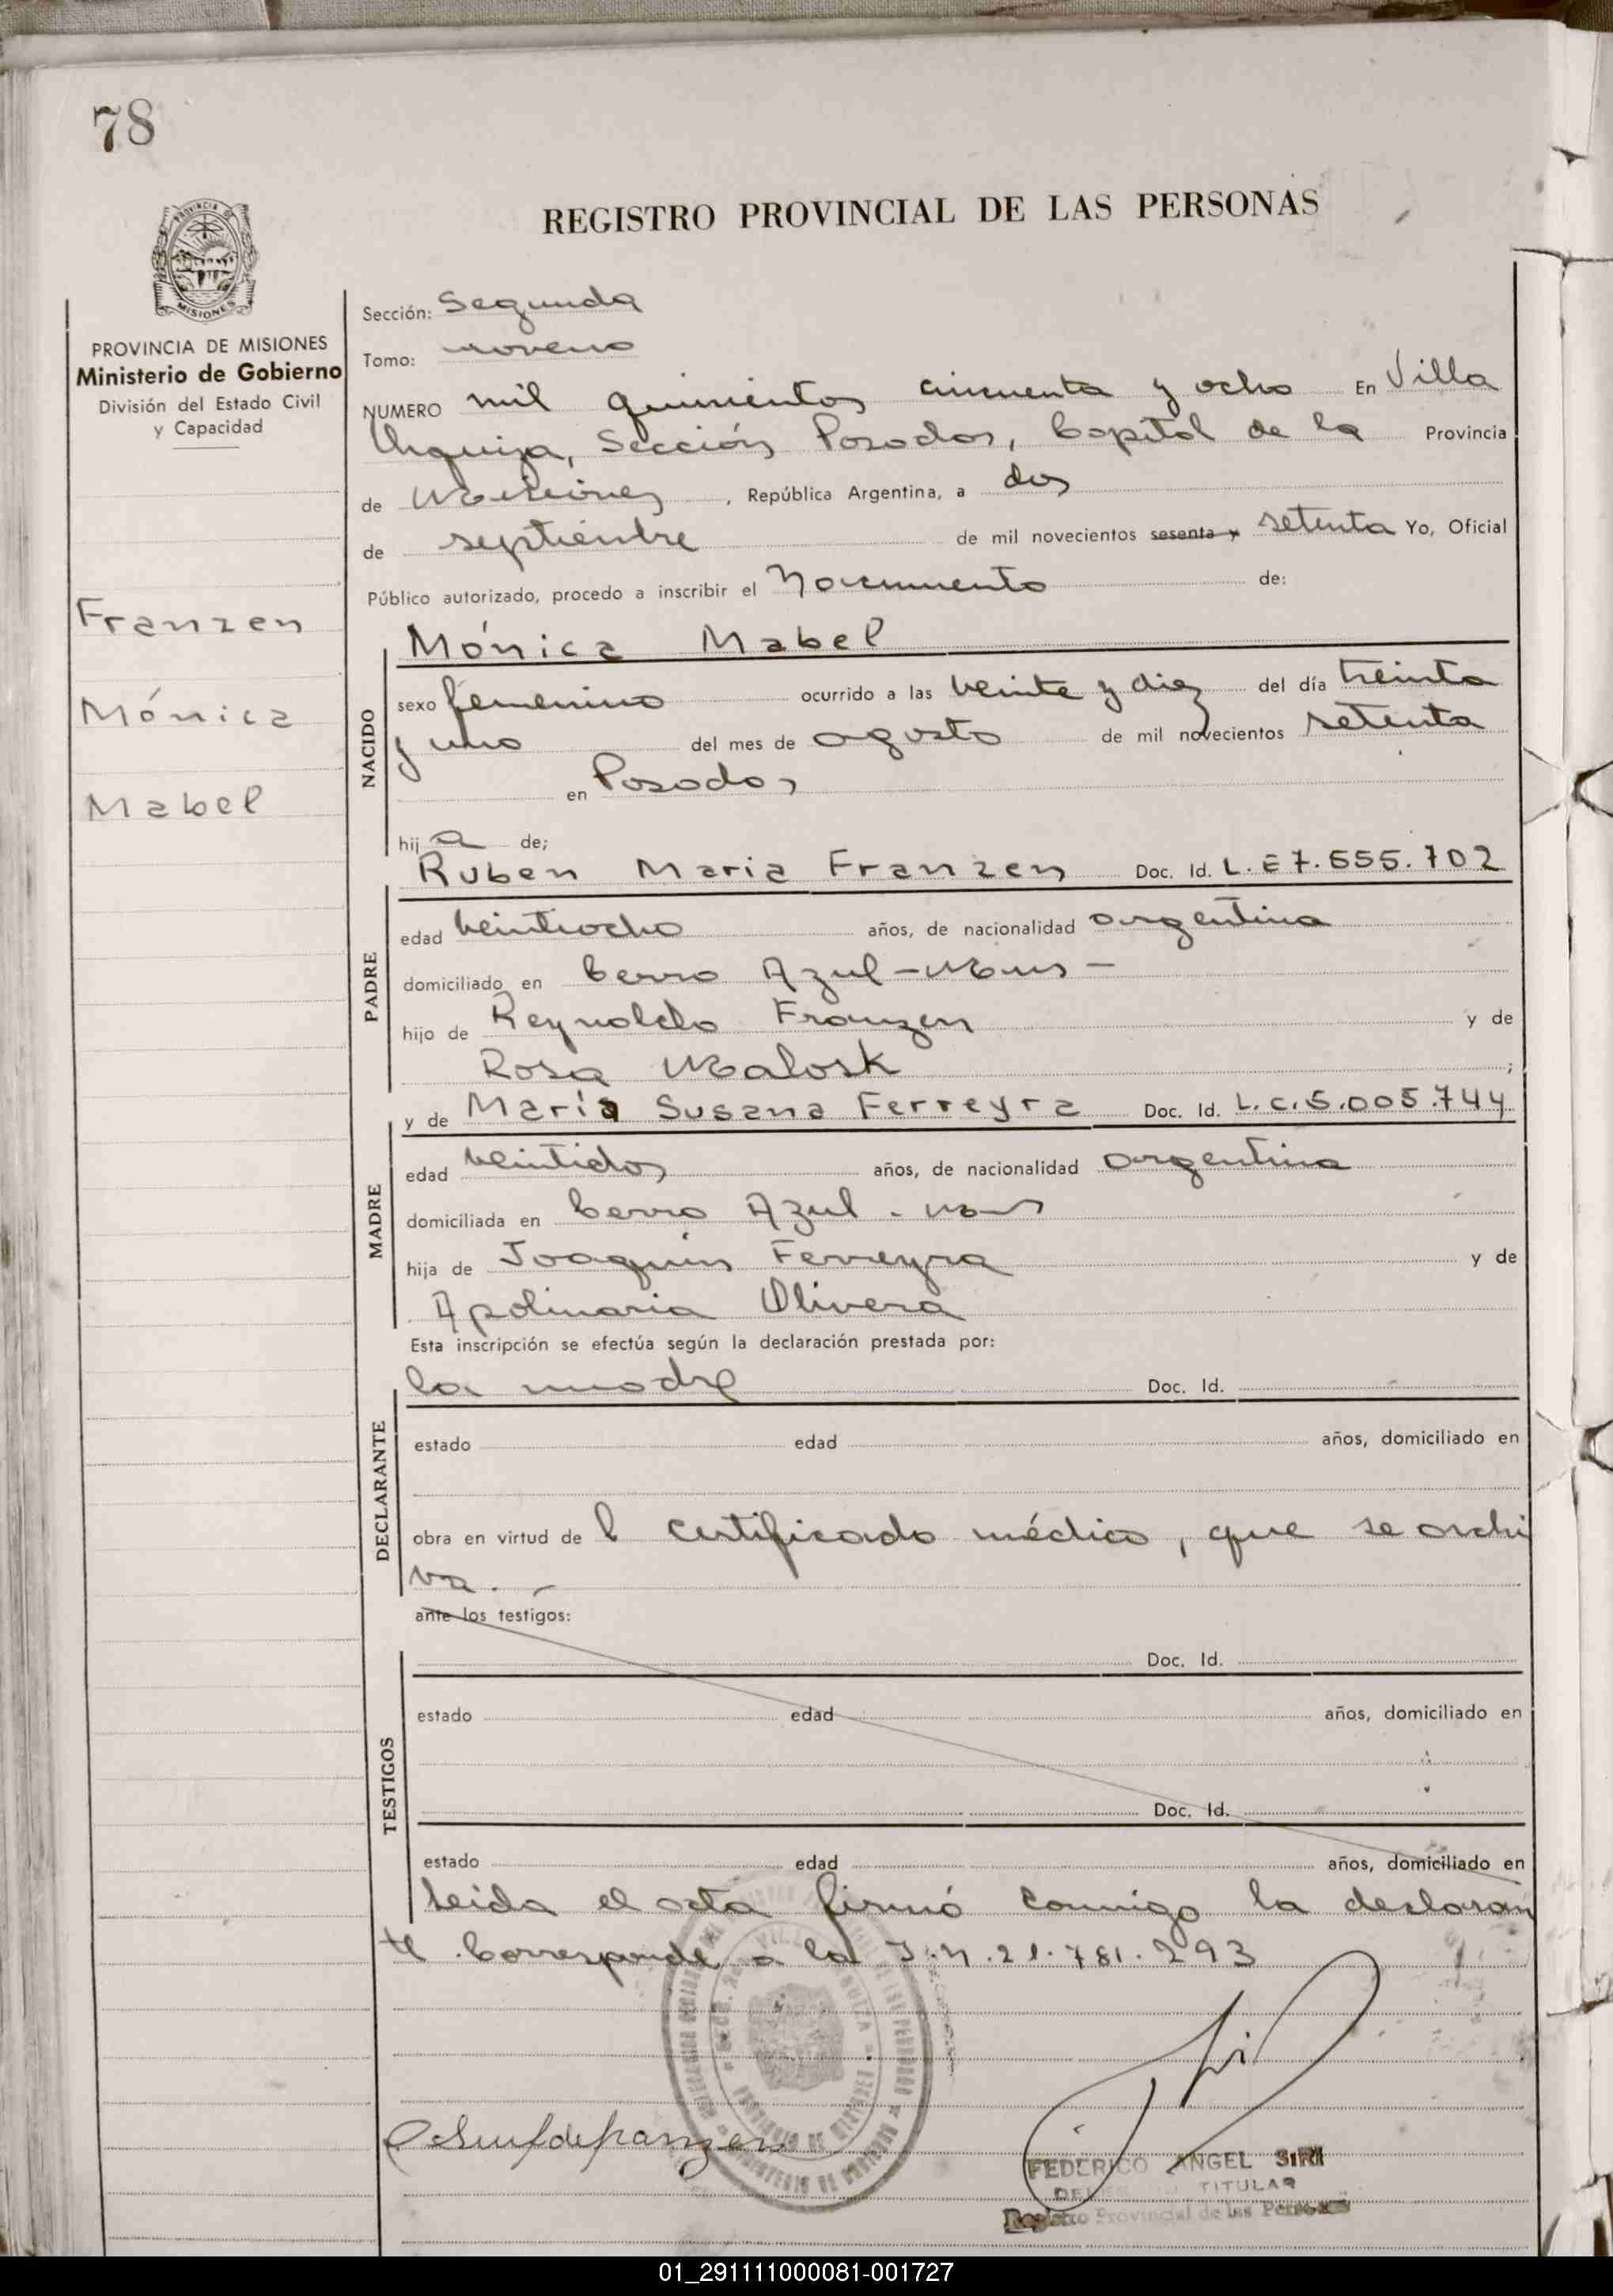 78
REGISTRO PROVINCIAL DE LAS PERSONAS
PROVINCIA DE MISIONES
Ministerio de Gobierno
División del Estado Civil
y Capacidad
Franzen
Mónica
Mabel
Sección: Segunda
Tomo: noveno
NUMERO mil quinientos cincuenta y ocho En Villa
Urquiza, Sección Posadas, Capital de la Provincia
de Misiones, República Argentina, a dos
de septiembre de mil novecientos sesenta y setenta Yo, Oficial
Público autorizado, procedo a inscribir el Nacimiento de:
Mónica Mabel
NACIDO
sexo femenino ocurrido a las veinte y diez del día treinta
y uno del mes de agosto de mil novecientos setenta
en Posadas
hij a de;
Ruben Maria Franzen Doc. Id. L.E 7.555.702
PADRE
edad veintiocho años, de nacionalidad argentina
domiciliado en Cerro Azul - Mnes -
hijo de Reynoldo Franzen y de
Rosa Malosk ;
y de María Susana Ferreyra Doc. Id. L.C.5.005.744
MADRE
edad veintidos años, de nacionalidad argentina
domiciliada en Cerro Azul - Mnes
hija de Joaquin Ferreyra y de
Apolinaria Olivera
Esta inscripción se efectúa según la declaración prestada por:
la madre Doc. Id.
DECLARANTE
estado edad años, domiciliado en
obra en virtud de l certificado médico, que se archi
va. -
ante los testigos:
Doc. Id.
TESTIGOS
estado edad años, domiciliado en
Doc. Id.
estado edad años, domiciliado en
Leida el acta firmó conmigo la declaran
te. Corresponde a la I.N.21.781.293
FEDERICO ANGEL SIRI
TITULAR
Registro Provincial de las Personas
01_291111000081-001727